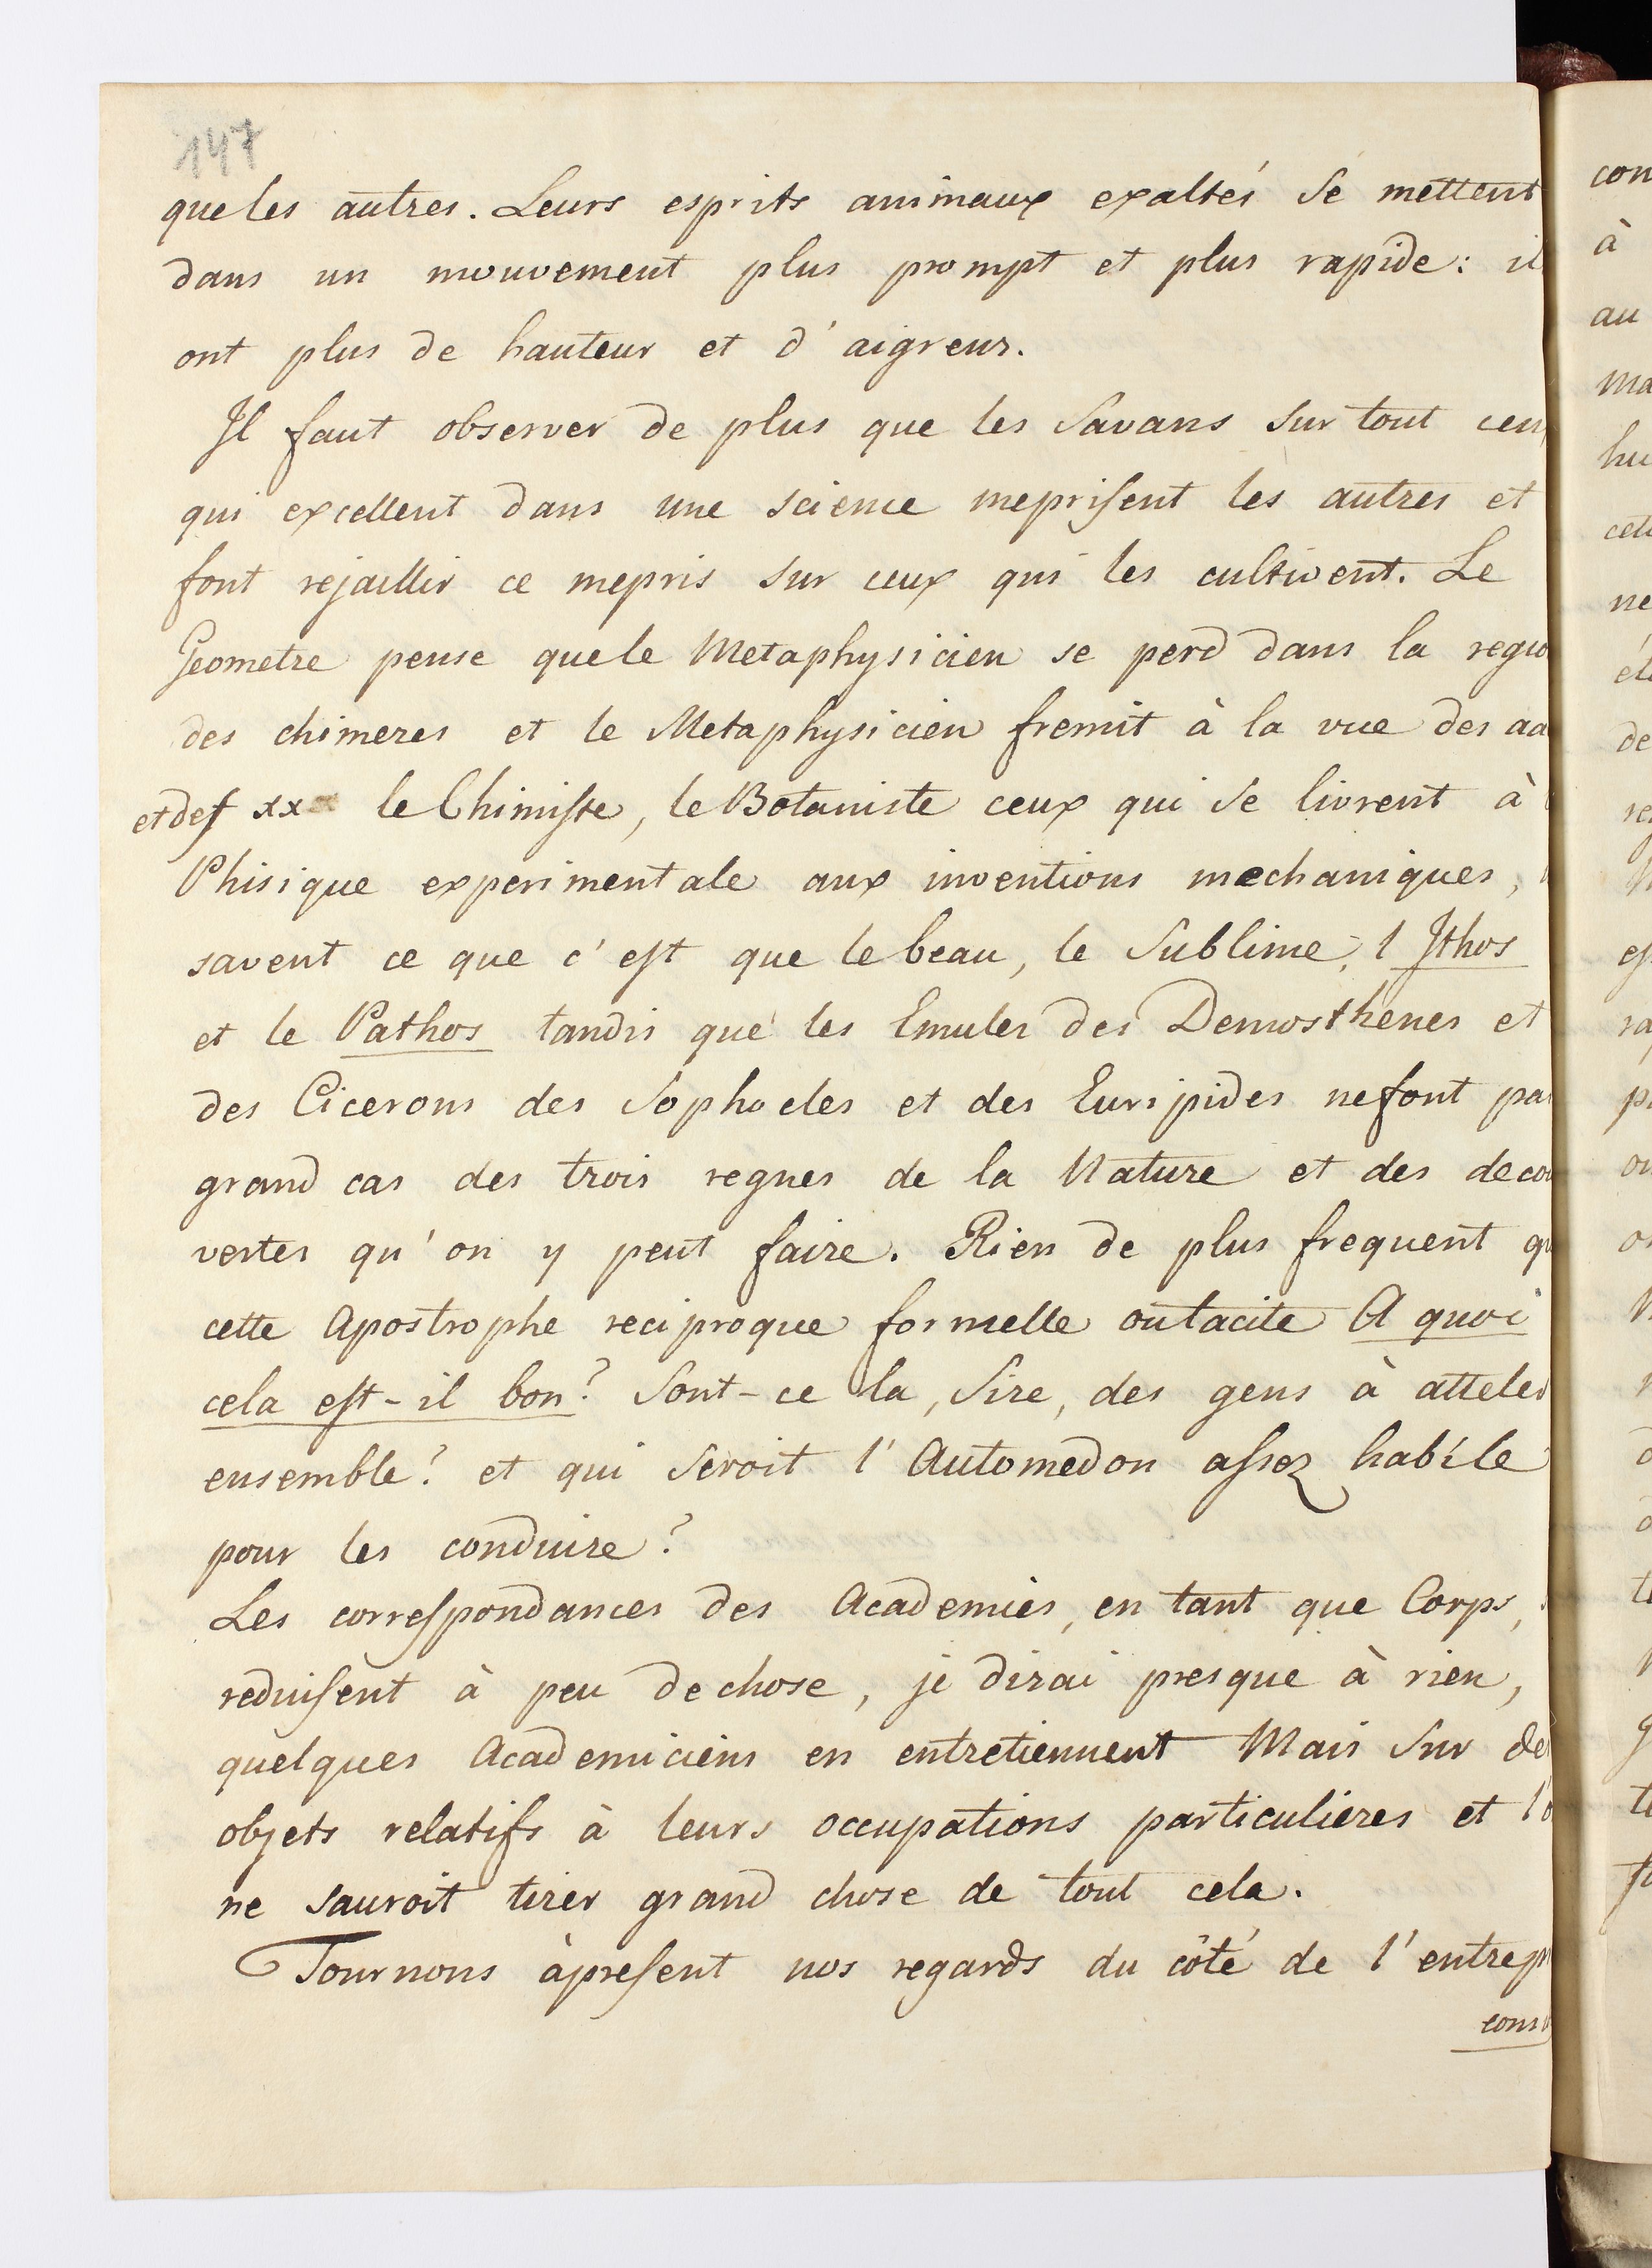 147
que les autres. Leurs esprits animaux exaltés se mettent
dans un mouvement plus prompt et plus rapide: il
ont plus de hauteur et d'aigreur.
Il faut observer de plus que les Savans sur tout ceux
qui excellent dans une science meprisent les autres et
font rejaillir ce mepris sur ceux qui les cultivent. Le
Geometre pense que le Metaphysicien se perd dans la regio
des chimeres et le Metaphysicien fremit à la vue des aa
et des xx le Chimiste, le Botaniste ceux qui se livrent à
Phisique experimentale aux inventions mechaniques,
savent ce que c'est que le beau, le Sublime, l Ithos
et le Pathos tandis que les Emules des Demosthenes et
des Cicerons des Sophocles et des Euripides ne font pas
grand cas des trois regnes de la Nature et des decou
vertes qu'on y peut faire. Rien de plus frequent qu
cette Apostrophe reciproque formelle ou tacite A quoi
cela est-il bon? Sont-ce la, Sire, des gens à atteler
ensemble? et qui seroit l'Automedon assez habile
pour les conduire?
Les correspondances des Academies, en tant que Corps,
reduisent à peu de chose, je dirai presque à rien,
quelques Academiciens en entretiennent Mais sur des
objets relatifs à leurs occupations particulieres et l'o
ne sauroit tirer grand chose de tout cela.
Tournons àpresent nos regards du côté de l'entrep
cons
con
à
au
ma
hu
cet
ne
de
ra
p